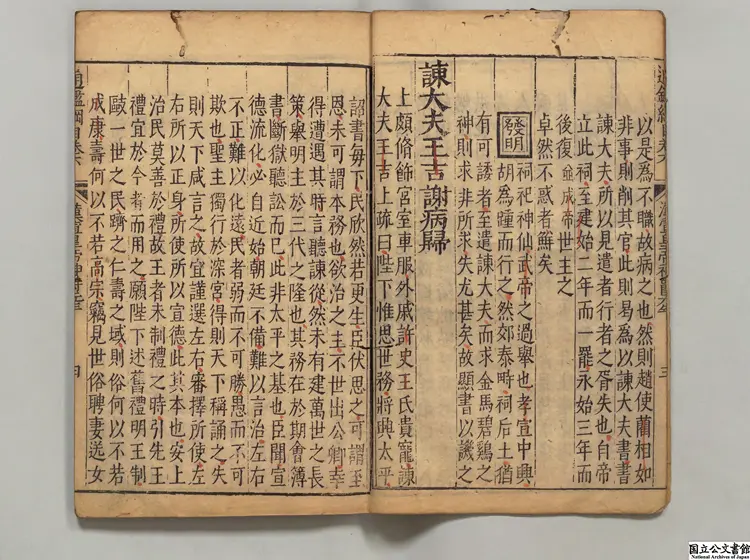 以是爲不職故病之也然則趙使藺相如
非事則削其官此則曷爲以諫大夫書書
諫大夫所以見遣者行者之胥失也自帝
立此祠至建始二年而一罷永始三年而
後復
卓然不惑者鮮矣
發明
祠祀神仙武帝之過舉也孝宣中興
胡爲踵而行之然郊泰畤祠后土猶
有可諉者至遣諫大夫而求金馬碧鷄之
神則求非所求失尤甚矣故顯書以譏之
諫大夫王吉謝病歸
上頗脩飾宮室車服外戚許史王氏貴寵諫
大夫王吉上疏曰陛下惟思世務將興太平
詔書毎下民欣然若更生臣伏思之可謂至
恩未可謂本務也欲治之主不世出公卿幸
得遭遇其時言聽諫從然未有建萬世之長
策舉明主於三代之隆也其務在於期會簿
書斷獄聽訟而巳此非太平之基也臣聞宣
德流化必自近始朝廷不備難以言治左右
不正難以化遠民者弱而不可勝愚而不可
欺也聖主獨行於深宮得則天下稱誦之失
則天下咸言之故宜謹選左右審擇所使左
右所以正身所使所以宣德此其本也安上
治民莫善於禮故王者未制禮之時引先王
禮宜於今者而用之願陛下述舊禮明王制
歐一世之民躋之仁壽之域則俗何以不若
成康壽何以不若高宗竊見世俗聘妻送女
三
四
国立公文書館
National Archives of Japan